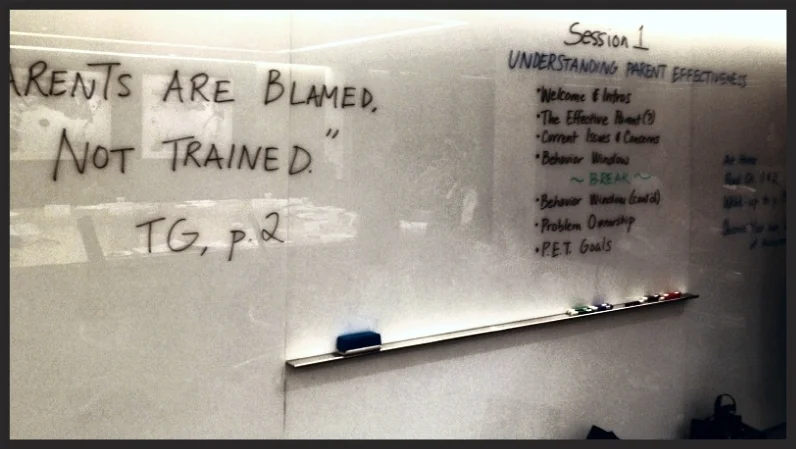 ARENTS ARE BLAMED,
NOT TRAINED."
TG, p. 2
Session 1
UNDERSTANDING PARENT EFFECTIVENESS
• Welcome & Intros
• The Effective Parent(?)
• Current Issues & Concerns
• Behavior Window
~ BREAK ~
• Behavior Window (cont'd)
• Problem Ownership
• P.E.T. Goals
At Home
Read Ch. 1 & 2